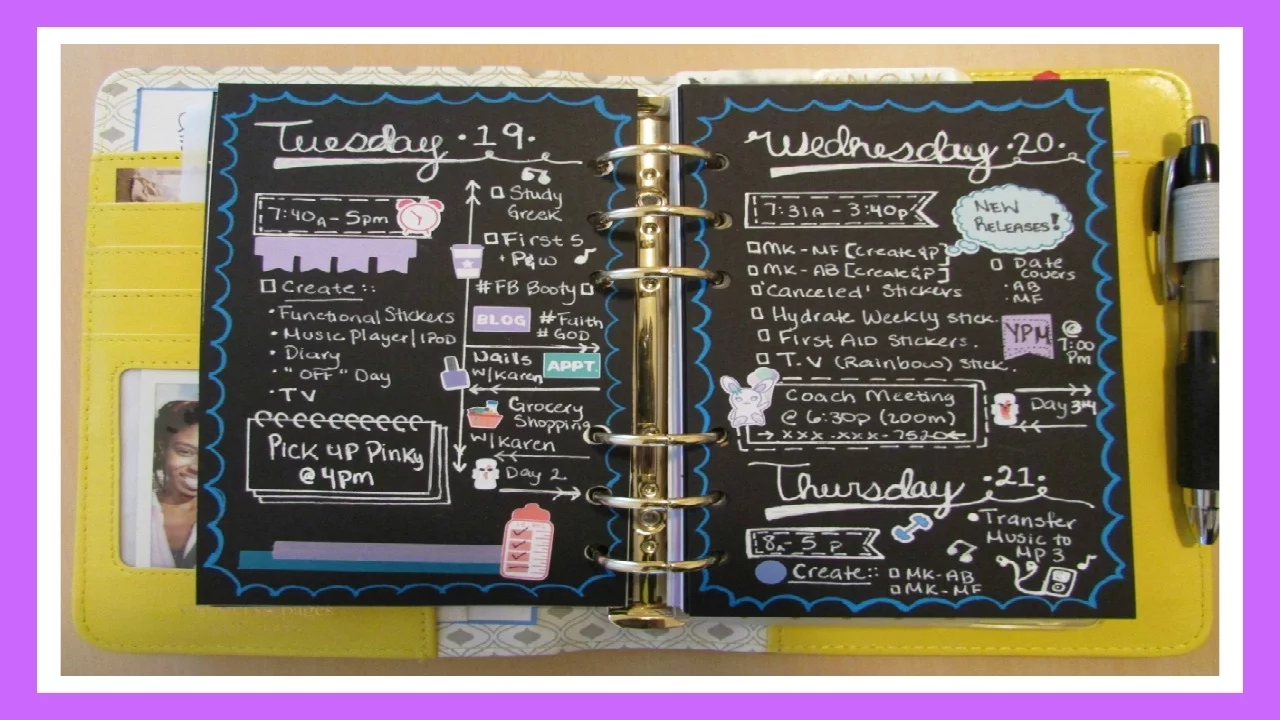 Tuesday ·19·
7:40A - 5pm
Create ::
• Functional Stickers
• Music Player/IPOD
• Diary
• "OFF" Day
• TV
Pick up Pinky
@ 4pm
Study
Greek
First 5
+ P&W
#FB Booty
BLOG
#Faith
#GOD
Nails
w/Karen
APPT.
Grocery
Shopping
w/Karen
Day 2
Wednesday ·20·
7:31A - 3:40p
NEW
RELEASES!
MK-MF [Create &P]
MK-AB [Create &P]
'Canceled' Stickers
Hydrate Weekly stick.
First Aid Stickers.
T.V (Rainbow) stick.
Date
Covers
• AB
• MF
YPM
@
7:00
Pm
Coach Meeting
@ 6:30p (200m)
→ xxx-xxx-7520 ←
Day 3
Thursday ·21·
8A - 5 p
Create ::
MK-AB
MK-MF
• Transfer
Music to
MP3